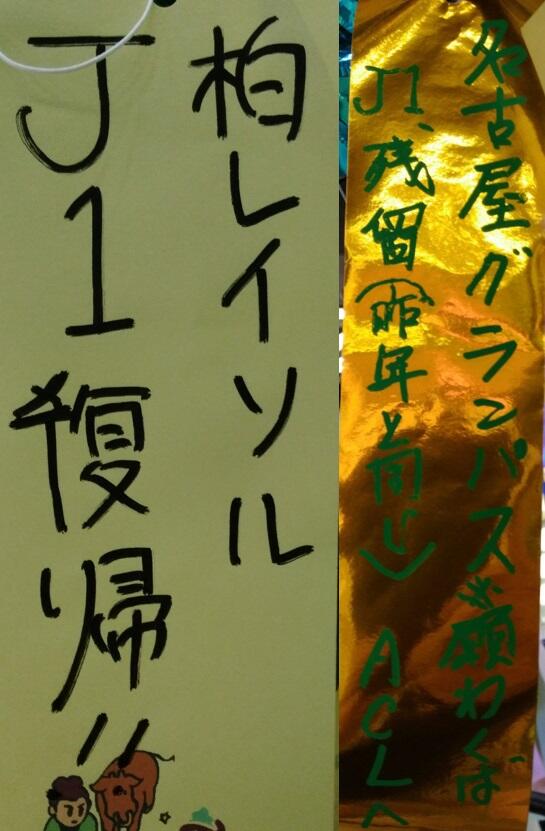 柏レイソル
J1復帰!!
名古屋グランパス願わくば
J1、残留(昨年と同じ) ACLへ